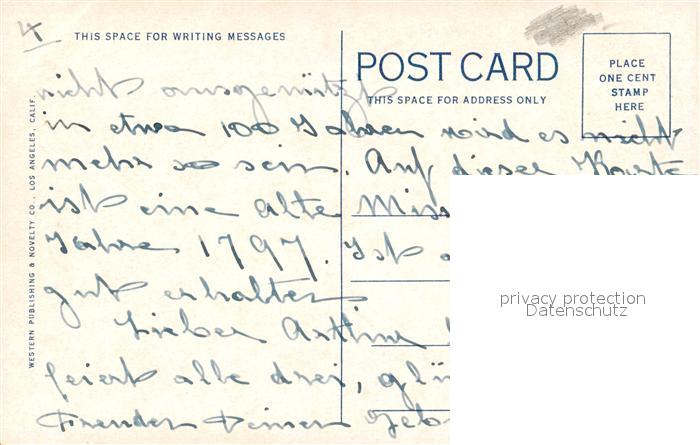 4
THIS SPACE FOR WRITING MESSAGES
POST CARD
THIS SPACE FOR ADDRESS ONLY
PLACE
ONE CENT
STAMP
HERE
WESTERN PUBLISHING & NOVELTY CO., LOS ANGELES, CALIF.
nicht ausgenützt
in etwa 100 Jahren wird es nicht
mehr so sein. Auf dieser Karte
ist eine alte Miss
Jahre 1797. Ist
gut erhalten
Lieber
feiert alle drei,
Freuden Deinen Geb
privacy protection
Datenschutz